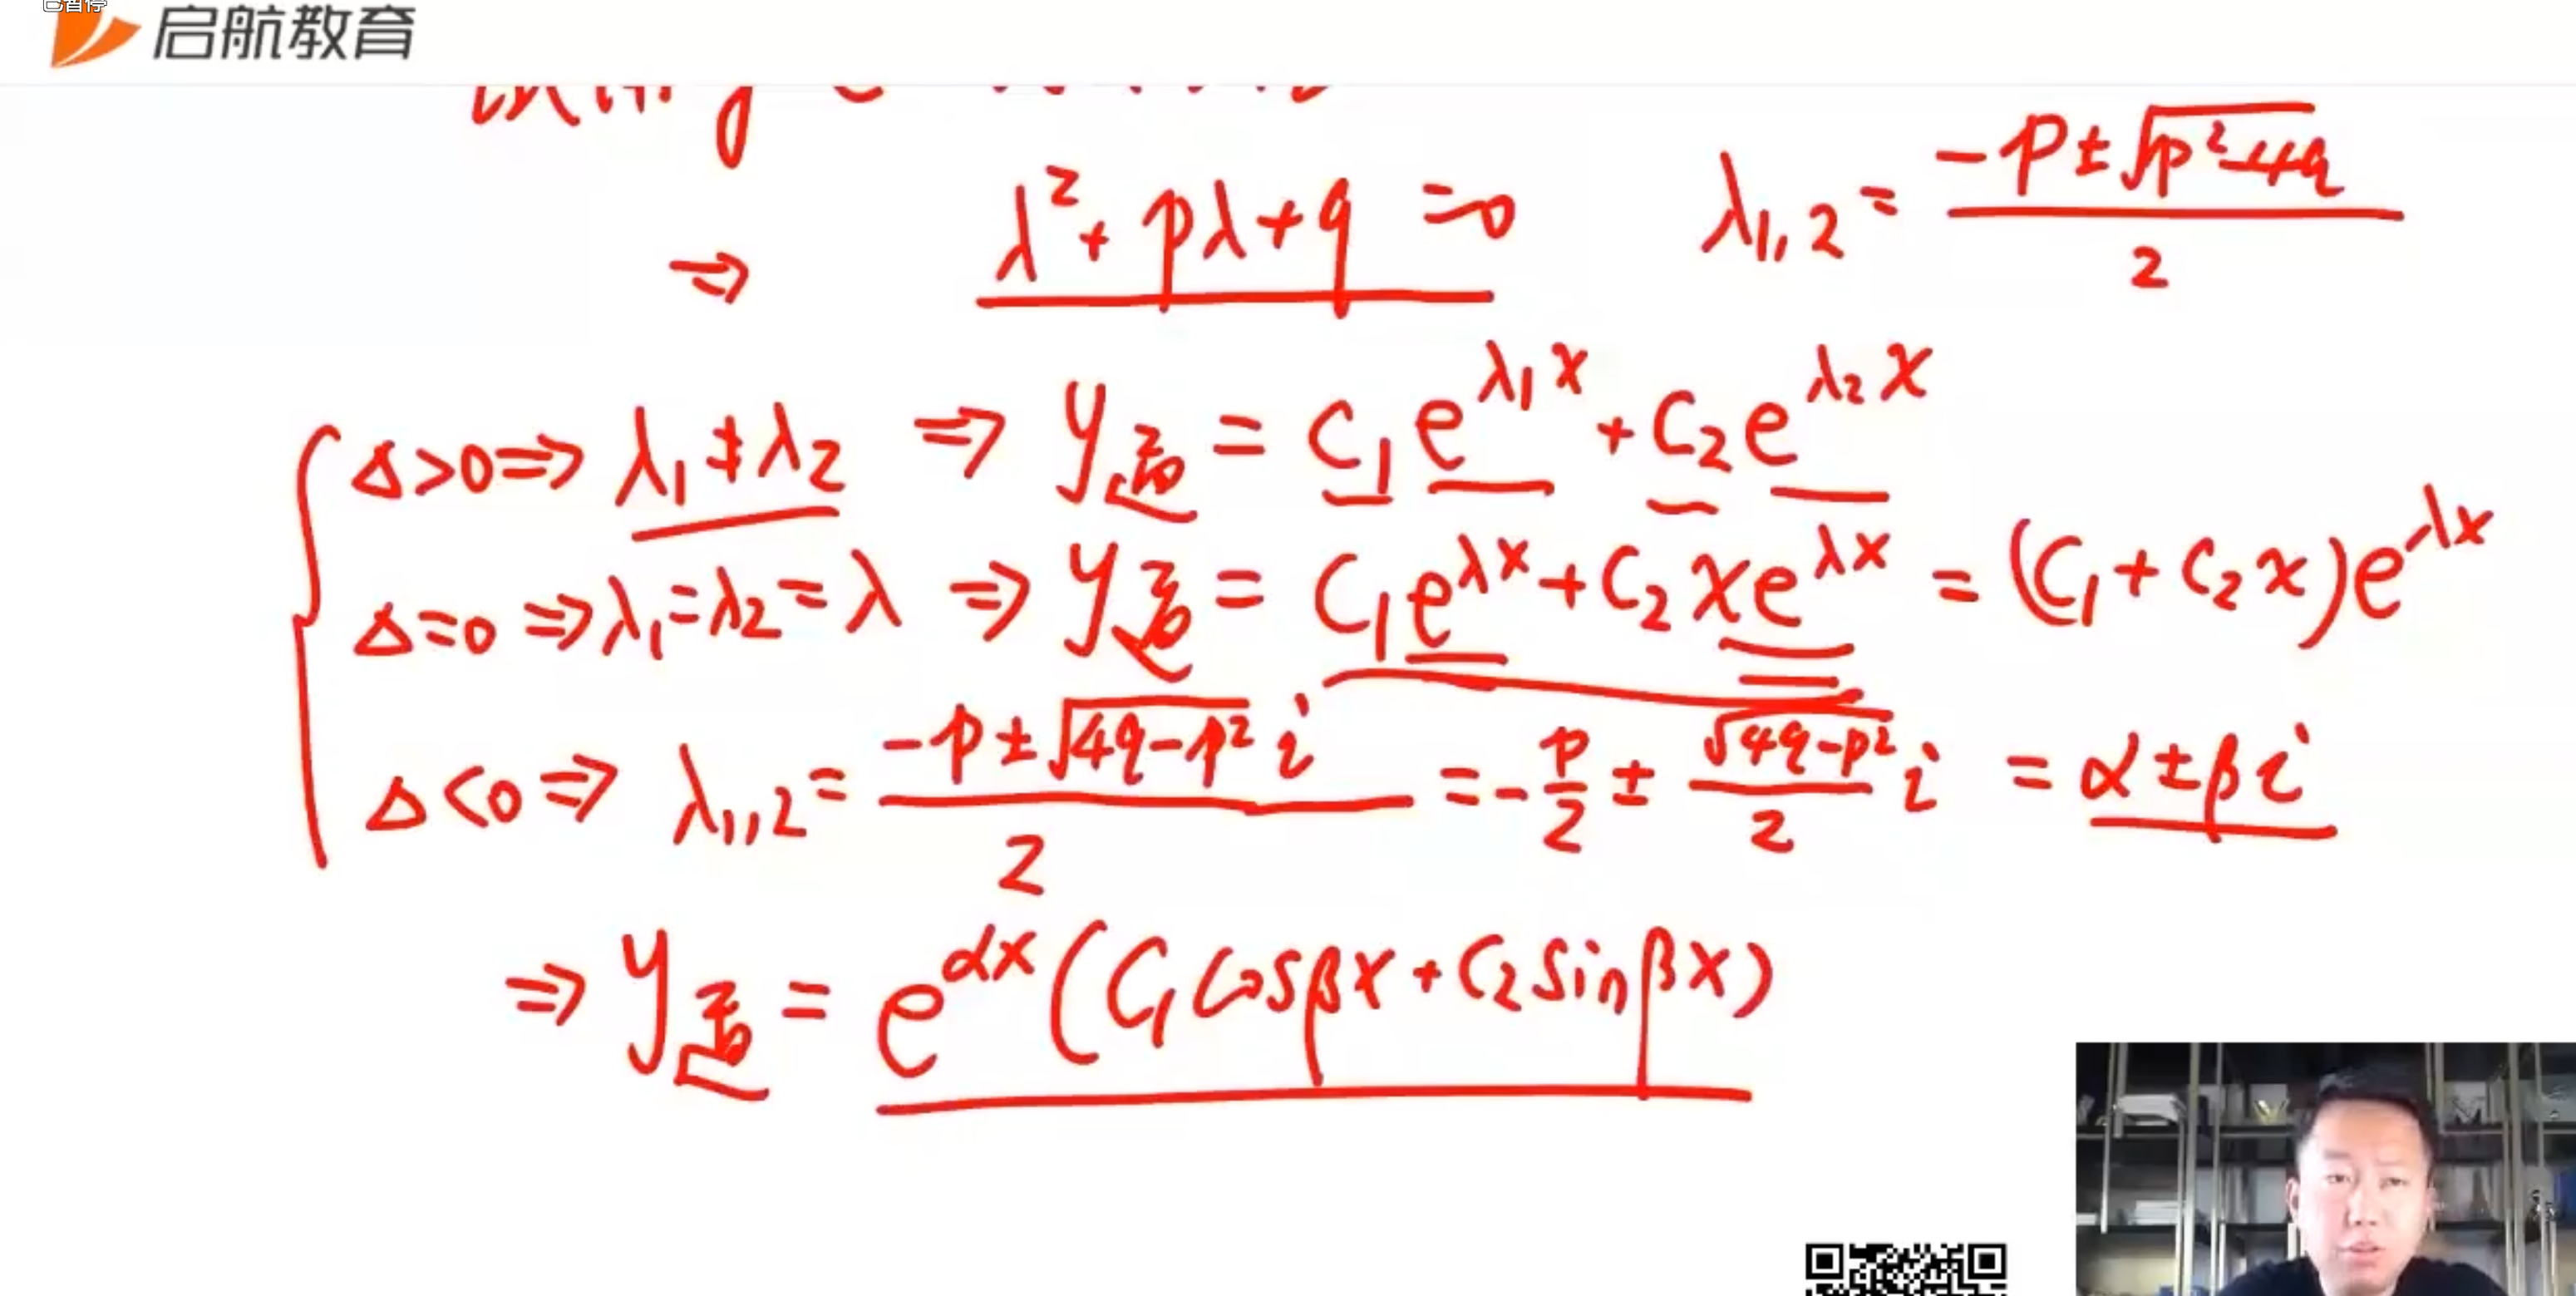 已暂停
启航教育
⇒ λ²+pλ+q=0 λ₁,₂=(-p±√(p²-4q))/2
Δ>0⇒λ₁≠λ₂ ⇒ y通=C₁e^(λ₁x)+C₂e^(λ₂x)
Δ=0⇒λ₁=λ₂=λ ⇒ y通=C₁e^(λx)+C₂xe^(λx)=(C₁+C₂x)e^(λx)
Δ<0⇒ λ₁,₂=(-p±√(4q-p²) i)/2=-p/2±(√(4q-p²)/2)i=α±βi
⇒ y通=e^(αx)(C₁cosβx+C₂sinβx)